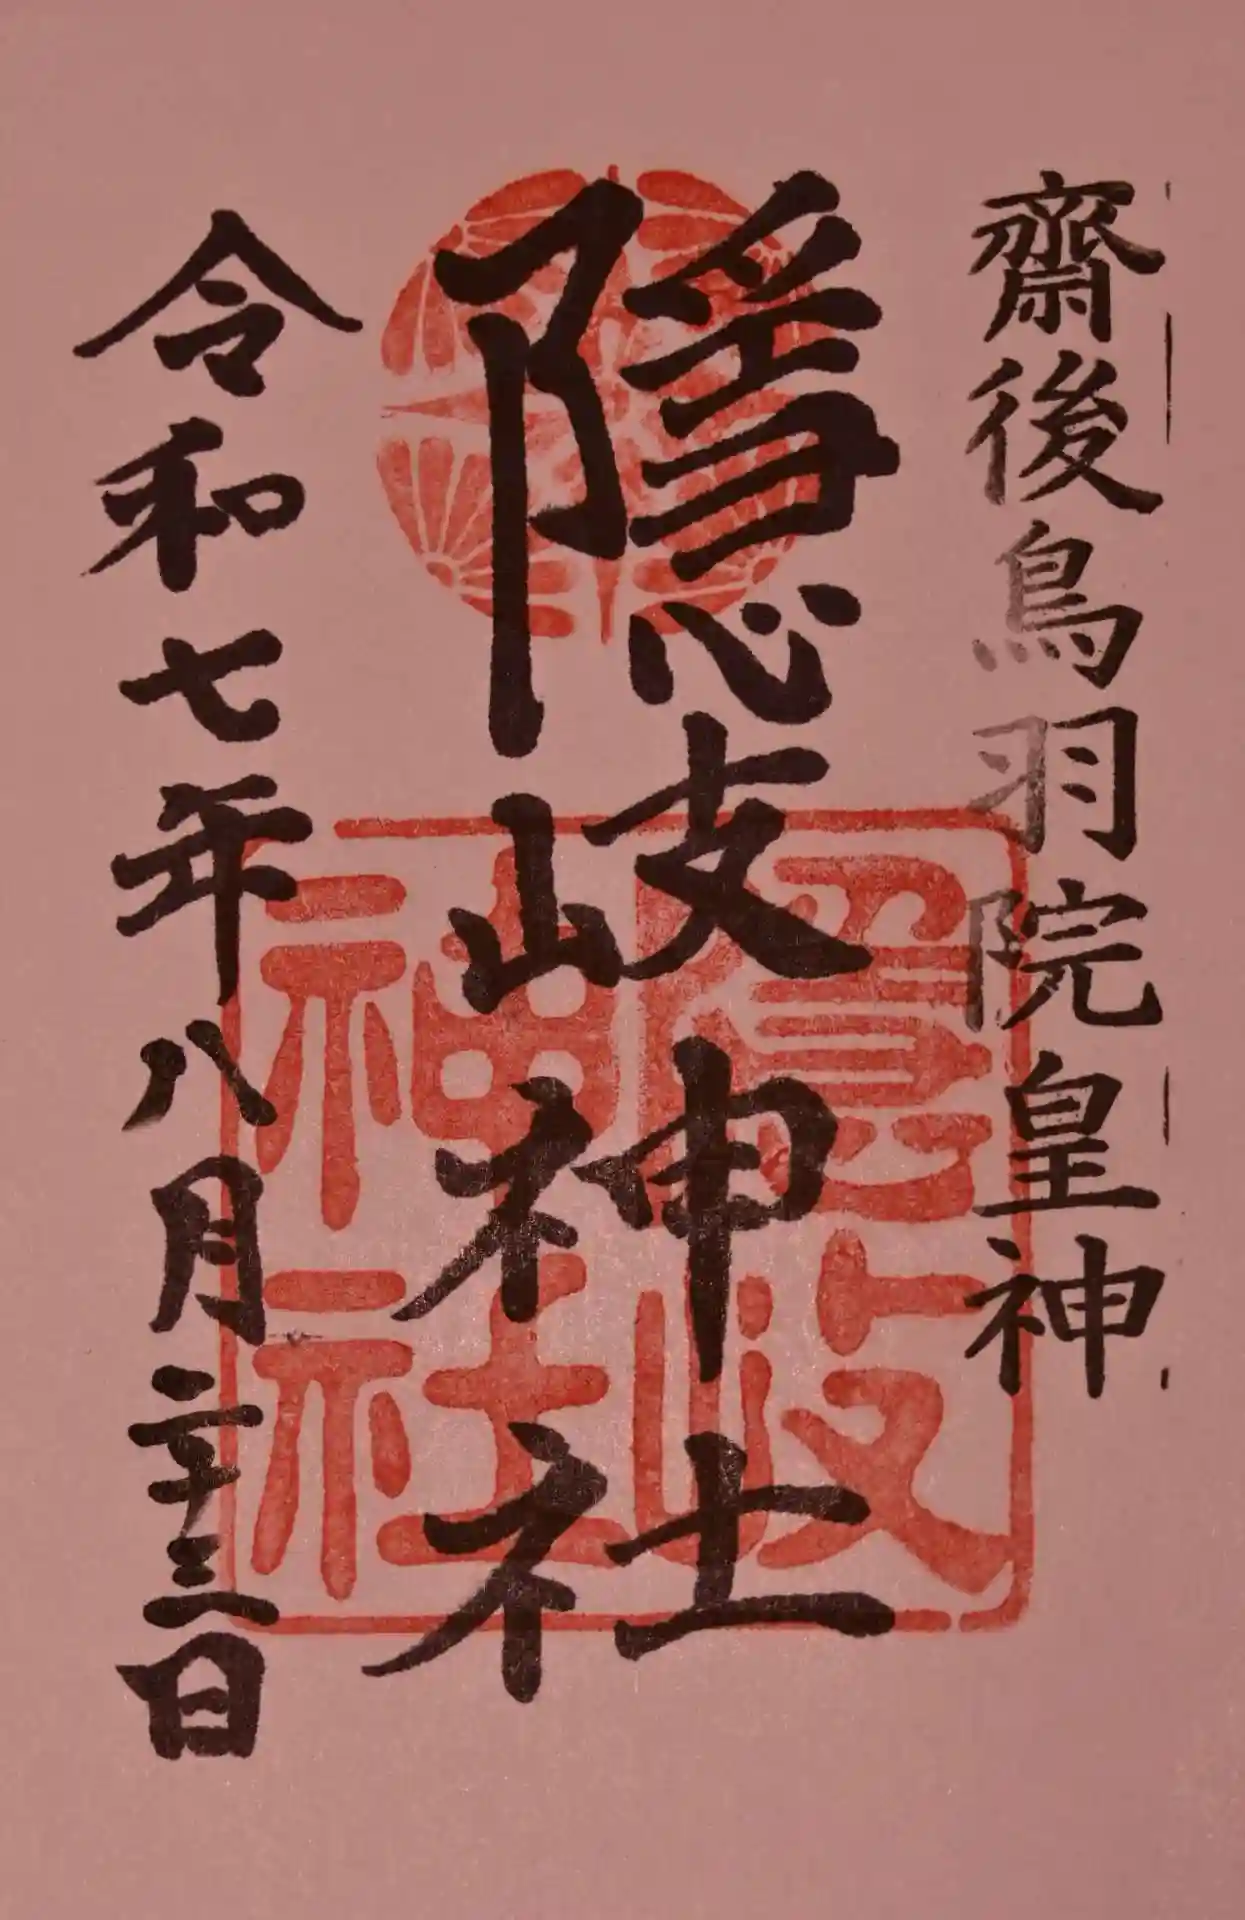 齋後鳥羽院皇神
隱岐神社
令和七年八月二十三日
隱岐
神社